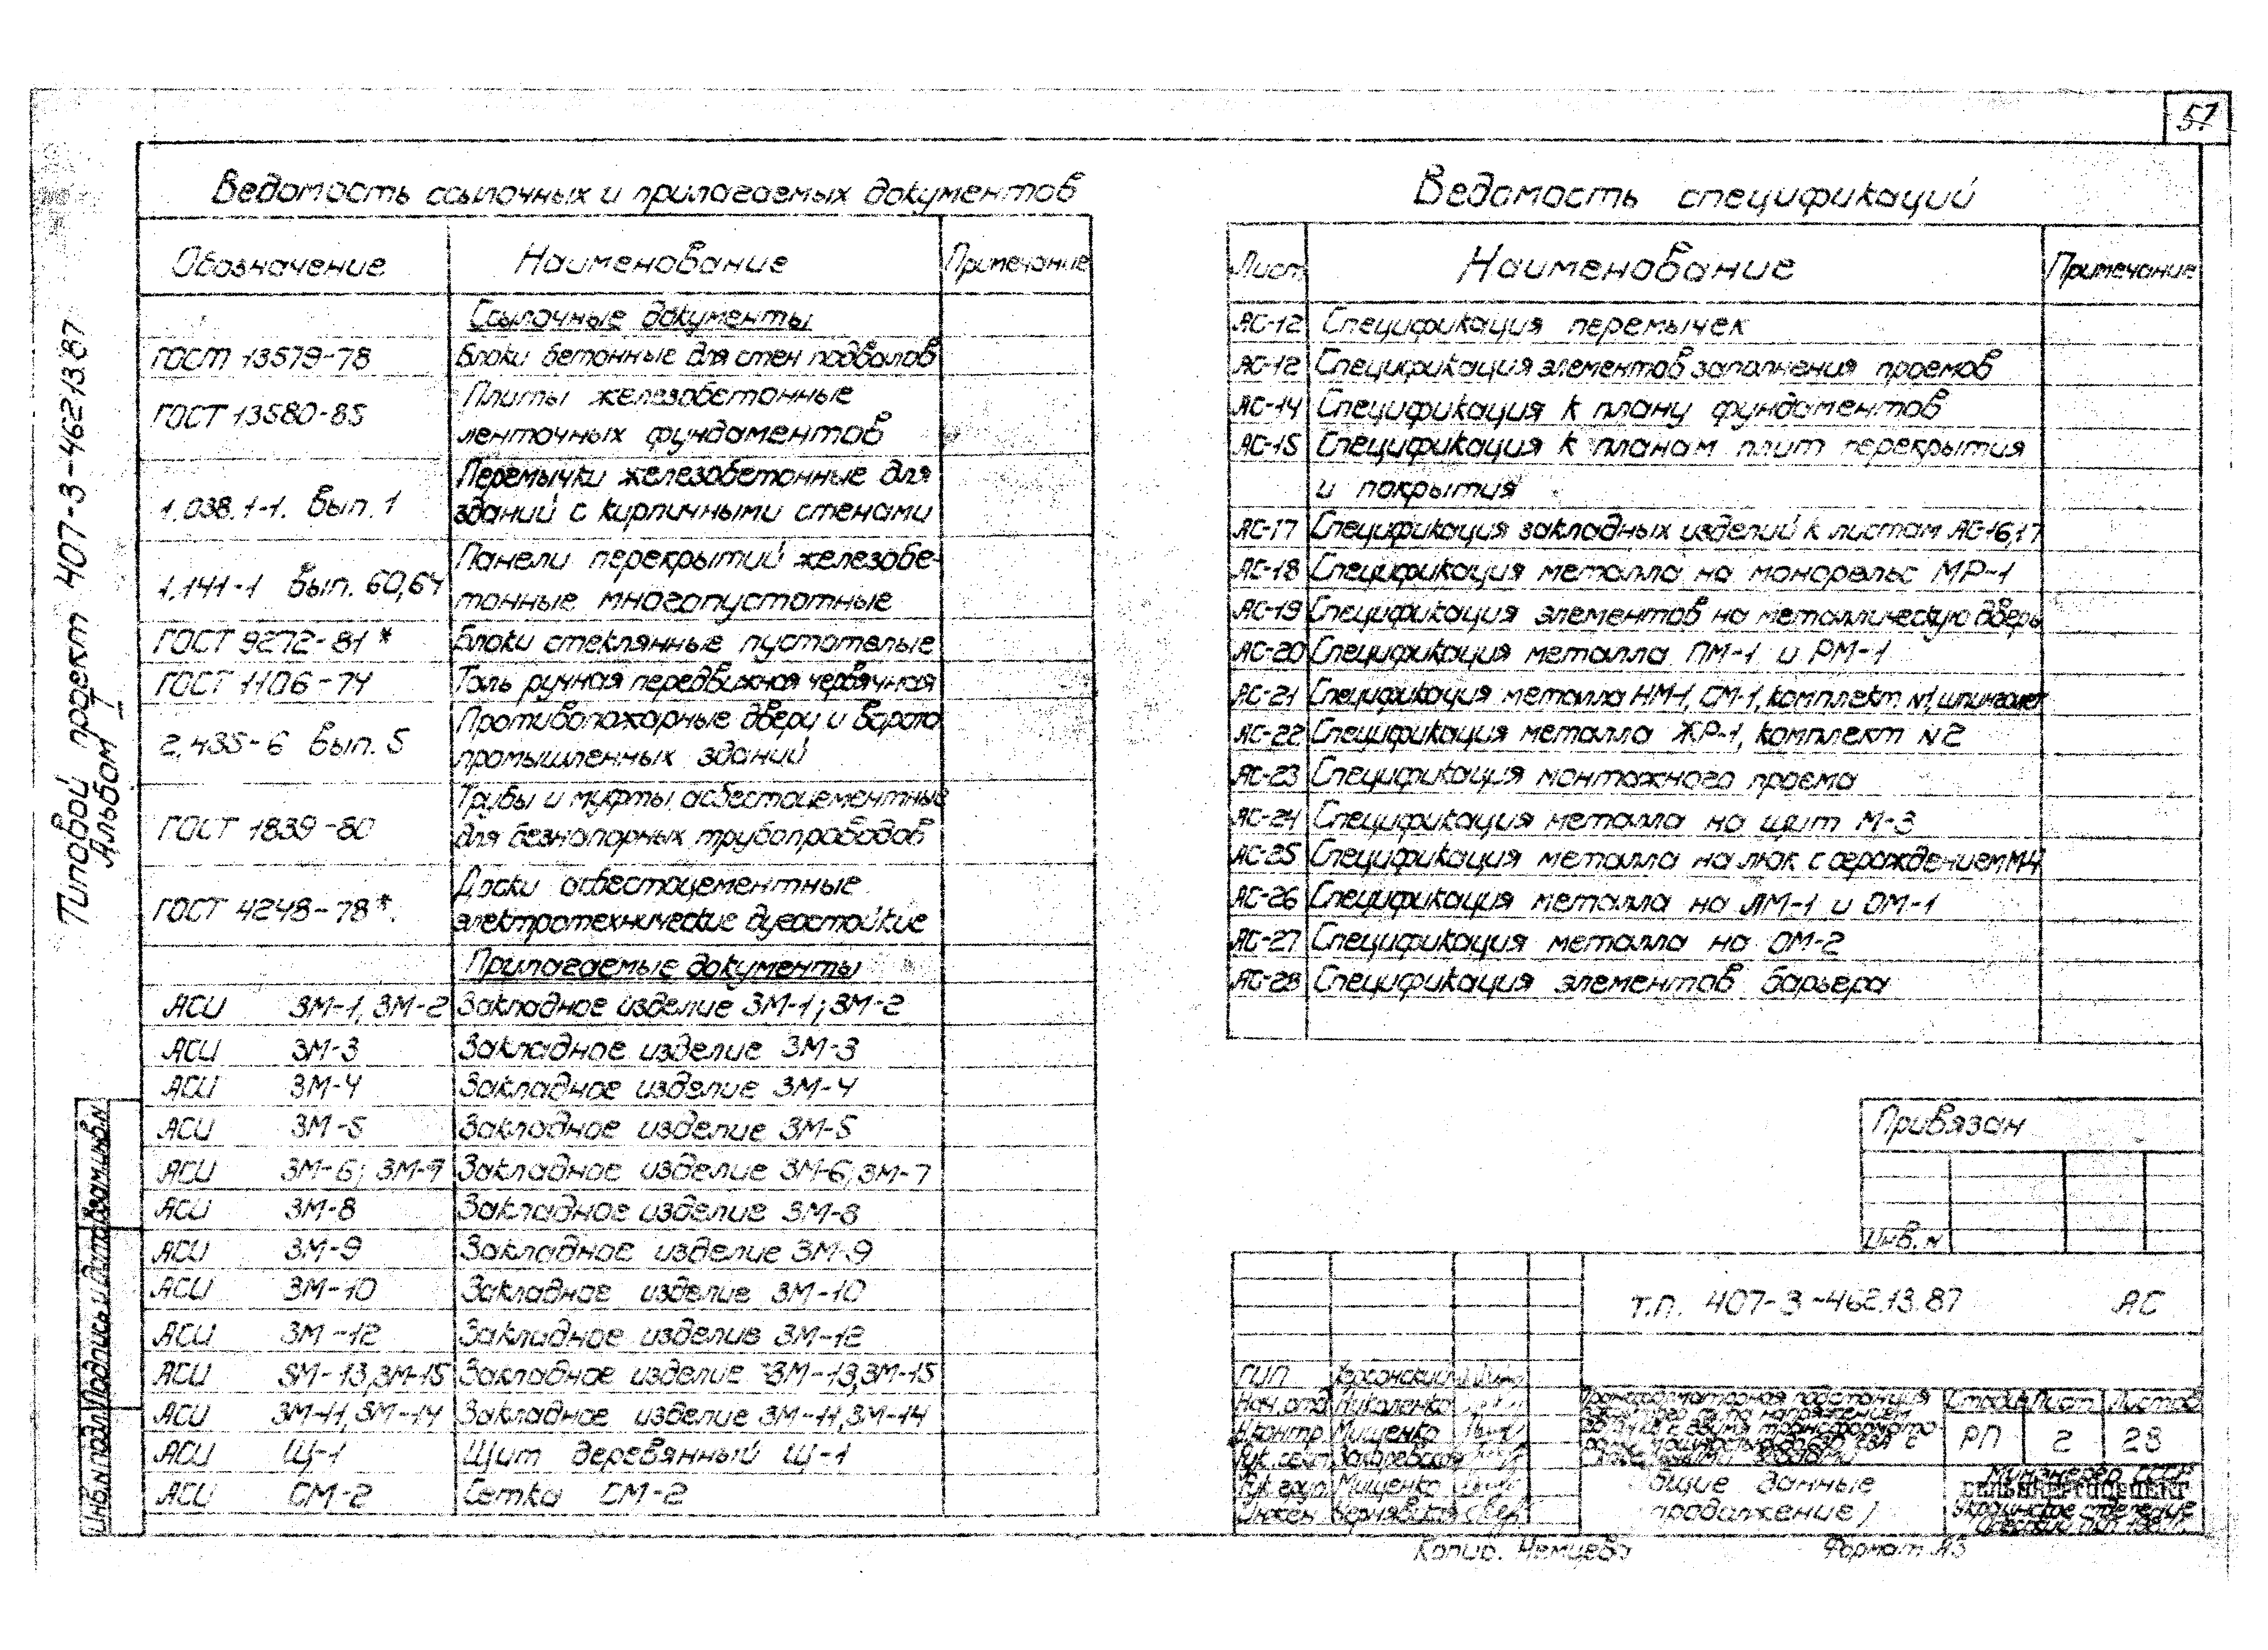 57
Типовой проект 407-3-462.13.87
Альбом I
Ведомость ссылочных и прилагаемых документов
Обозначение Наименование Примечание
Ссылочные документы
ГОСТ 13579-78 Блоки бетонные для стен подвалов
ГОСТ 13580-85 Плиты железобетонные
ленточных фундаментов
1.038.1-1. Вып. 1 Перемычки железобетонные для
зданий с кирпичными стенами
1.141-1 Вып. 60,64 Панели перекрытий железобе-
тонные многопустотные
ГОСТ 9272-81* Блоки стеклянные пустотелые
ГОСТ 1106-74 Таль ручная передвижная червячная
2.435-6 Вып. 5 Противопожарные двери и ворота
промышленных зданий
ГОСТ 1839-80 Трубы и муфты асбестоцементные
для безнапорных трубопроводов
ГОСТ 4248-78*. Доски асбестоцементные
электротехнические дугостойкие
Прилагаемые документы
АСИ ЗМ-1, ЗМ-2 Закладное изделие ЗМ-1; ЗМ-2
АСИ ЗМ-3 Закладное изделие ЗМ-3
АСИ ЗМ-4 Закладное изделие ЗМ-4
АСИ ЗМ-5 Закладное изделие ЗМ-5
АСИ ЗМ-6; ЗМ-7 Закладное изделие ЗМ-6; ЗМ-7
АСИ ЗМ-8 Закладное изделие ЗМ-8
АСИ ЗМ-9 Закладное изделие ЗМ-9
АСИ ЗМ-10 Закладное изделие ЗМ-10
АСИ ЗМ-12 Закладное изделие ЗМ-12
АСИ ЗМ-13,ЗМ-15 Закладное изделие ЗМ-13,ЗМ-15
АСИ ЗМ-11, ЗМ-14 Закладное изделие ЗМ-11, ЗМ-14
АСИ Щ-1 Щит деревянный Щ-1
АСИ СМ-2 Сетка СМ-2
Ведомость спецификаций
Лист Наименование Примечание
АС-12 Спецификация перемычек
АС-12 Спецификация элементов заполнения проемов
АС-14 Спецификация к плану фундаментов
АС-15 Спецификация к планам плит перекрытия
и покрытия
АС-17 Спецификация закладных изделий к листам АС-16,17
АС-18 Спецификация металла на монорельс МР-1
АС-19 Спецификация элементов на металлическую дверь
АС-20 Спецификация металла ПМ-1 и РМ-1
АС-21 Спецификация металла НМ-1, СМ-1, комплект N1, шпингалет
АС-22 Спецификация металла ЖР-1, комплект N2
АС-23 Спецификация монтажного проема
АС-24 Спецификация металла на щит М-3
АС-25 Спецификация металла на люк с ограждением М-4
АС-26 Спецификация металла на ЛМ-1 и ОМ-1
АС-27 Спецификация металла на ОМ-2
АС-28 Спецификация элементов барьера
Привязан
Инв. N
т.п. 407-3-462.13.87 АС
ГИП Херсонский
Нач. отд. Николенко
Н.контр. Мищенко
Рук. сект.
Рук. груп. Мищенко
Инжен. Чернявская
Трансформаторная подстанция
Стадия Лист Листов
РП 2 28
Общие данные
(продолжение)
Минэнерго СССР
Сельэнергопроект
Украинское отделение
Инв.N подл. Подпись и дата Взам.инв.N
Копир. Немцева Формат А3